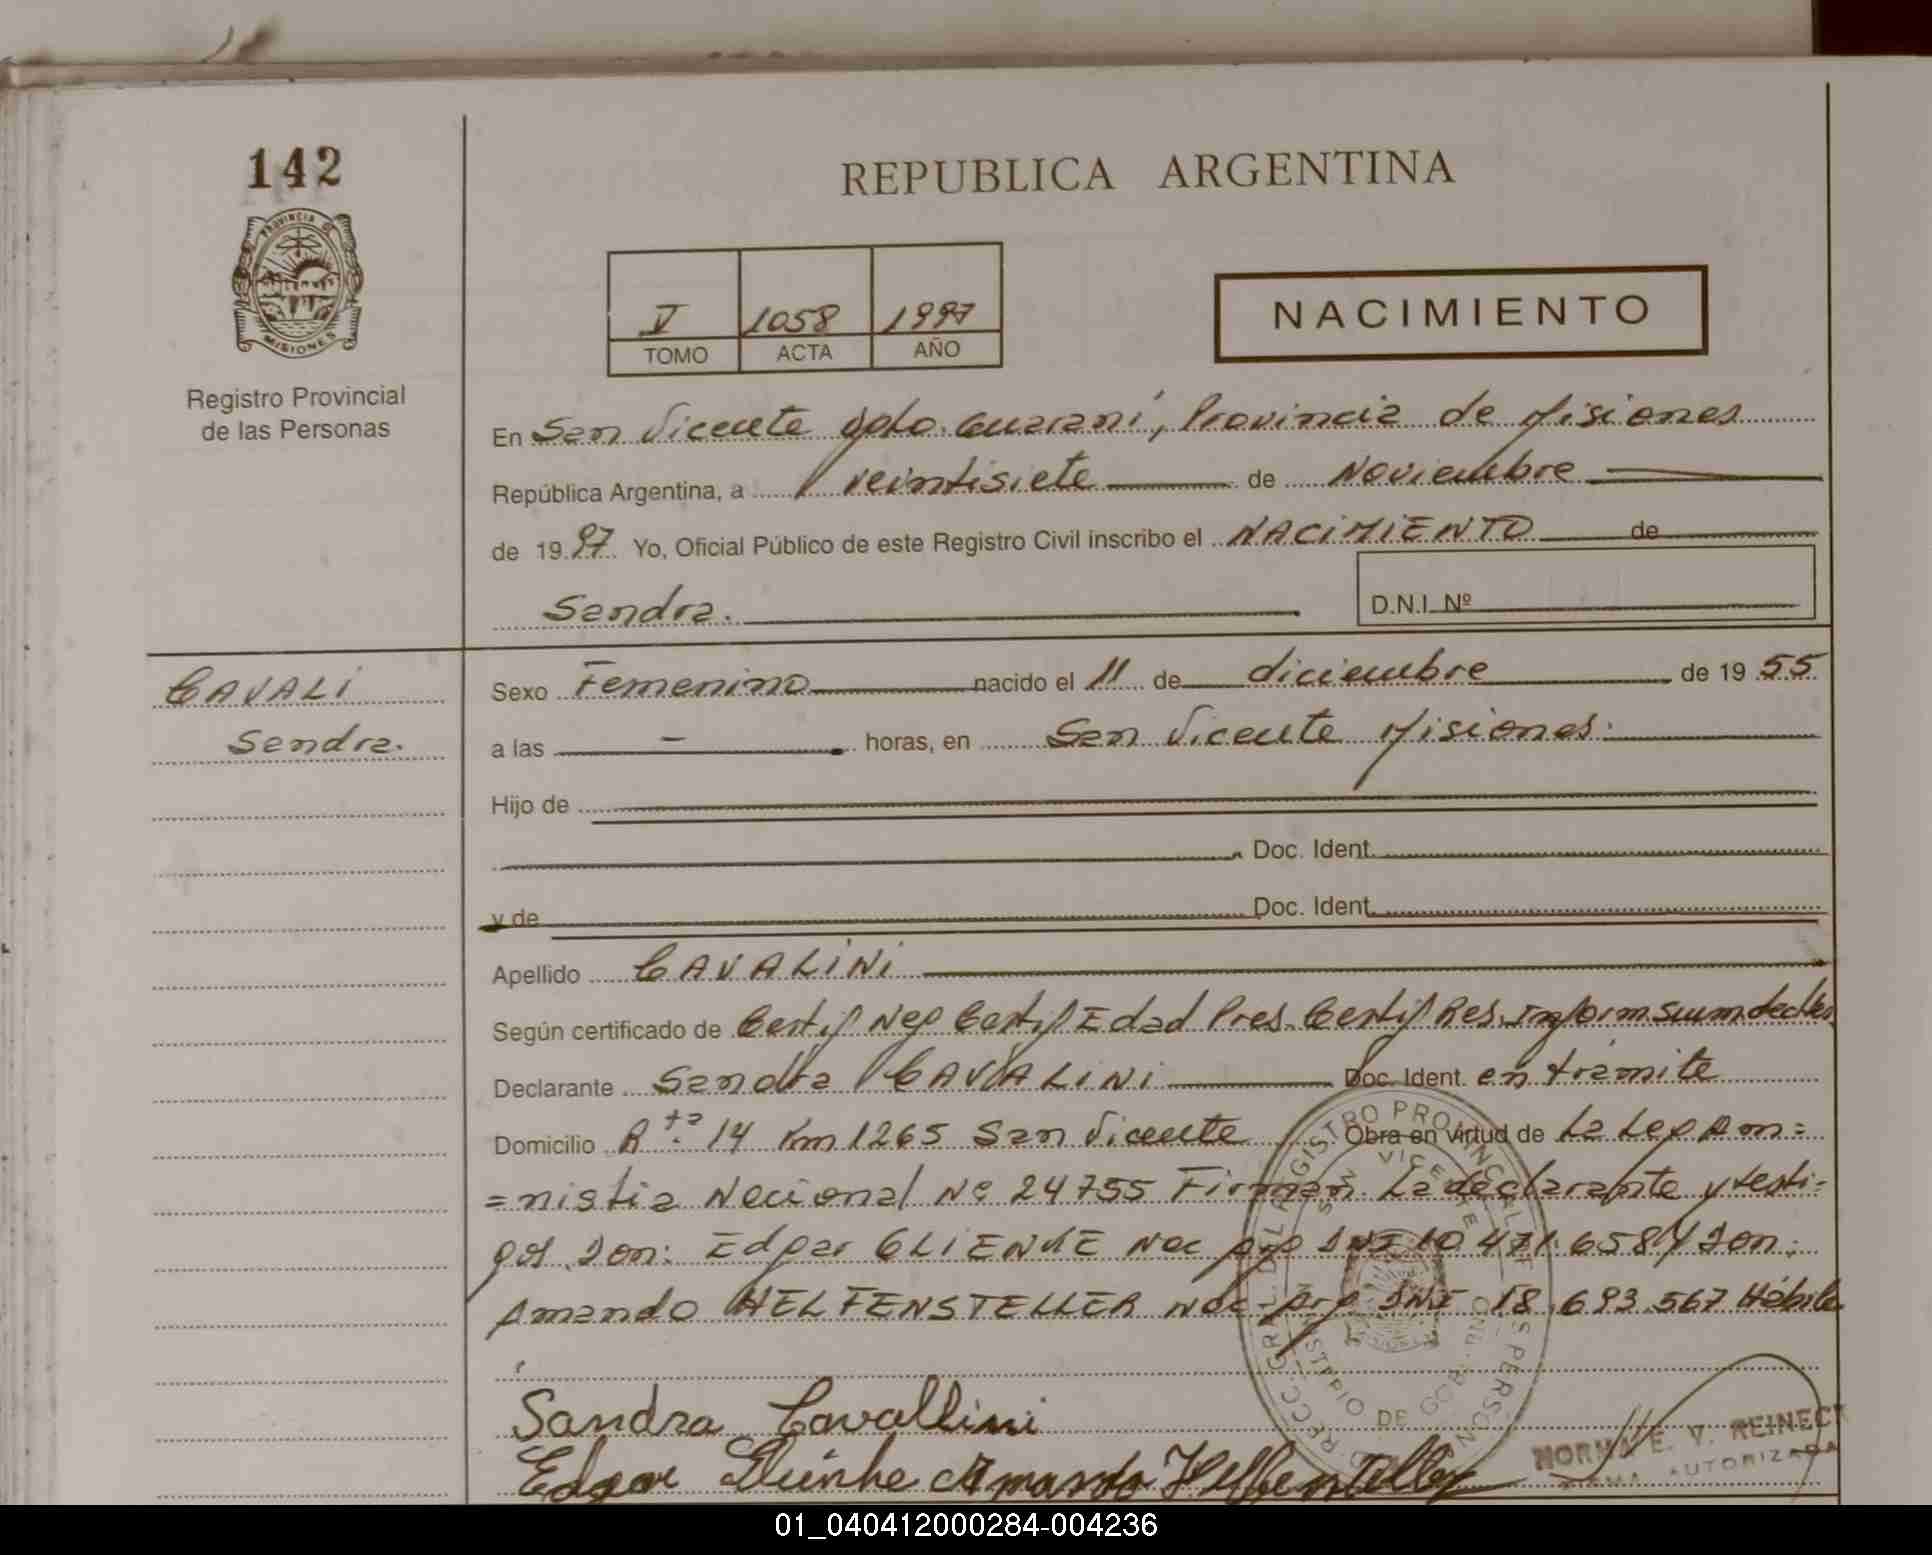 142
PROVINCIA DE
MISIONES
Registro Provincial
de las Personas
REPUBLICA ARGENTINA
V 1058 1997
TOMO ACTA AÑO
NACIMIENTO
En San Vicente Dpto. Guaraní, Provincia de Misiones
República Argentina, a veintisiete de Noviembre
de 1997 Yo, Oficial Público de este Registro Civil inscribo el NACIMIENTO de
Sandra.
D.N.I. Nº
CAVALI
Sandra.
Sexo Femenino nacido el 11 de diciembre de 1955
a las - horas, en San Vicente Misiones.
Hijo de
Doc. Ident.
y de Doc. Ident.
Apellido CAVALINI
Según certificado de Certif Neg Certif Edad Pres. Certif Res. Inform Sum
Declarante Sandra CAVALINI Doc. Ident. en trámite
Domicilio Rta. 14 Km 1265 San Vicente Obra en virtud de La Ley Am=
=nistia Nacional Nº 24755 Firman. La declarante y testi=
gos Don: Edgar GLIENKE Nac DNI 10 471.658 y Don:
Amando HELFENSTELLER Nac DNI 18.693.567 Hábiles
Sandra Cavallini
Edgar Amando
NORMA E. V. REINECK
FIRMA AUTORIZADA
REGISTRO PROVINCIAL DE LAS PERSONAS
SAN VICENTE
MINISTERIO DE GOB.
01_040412000284-004236